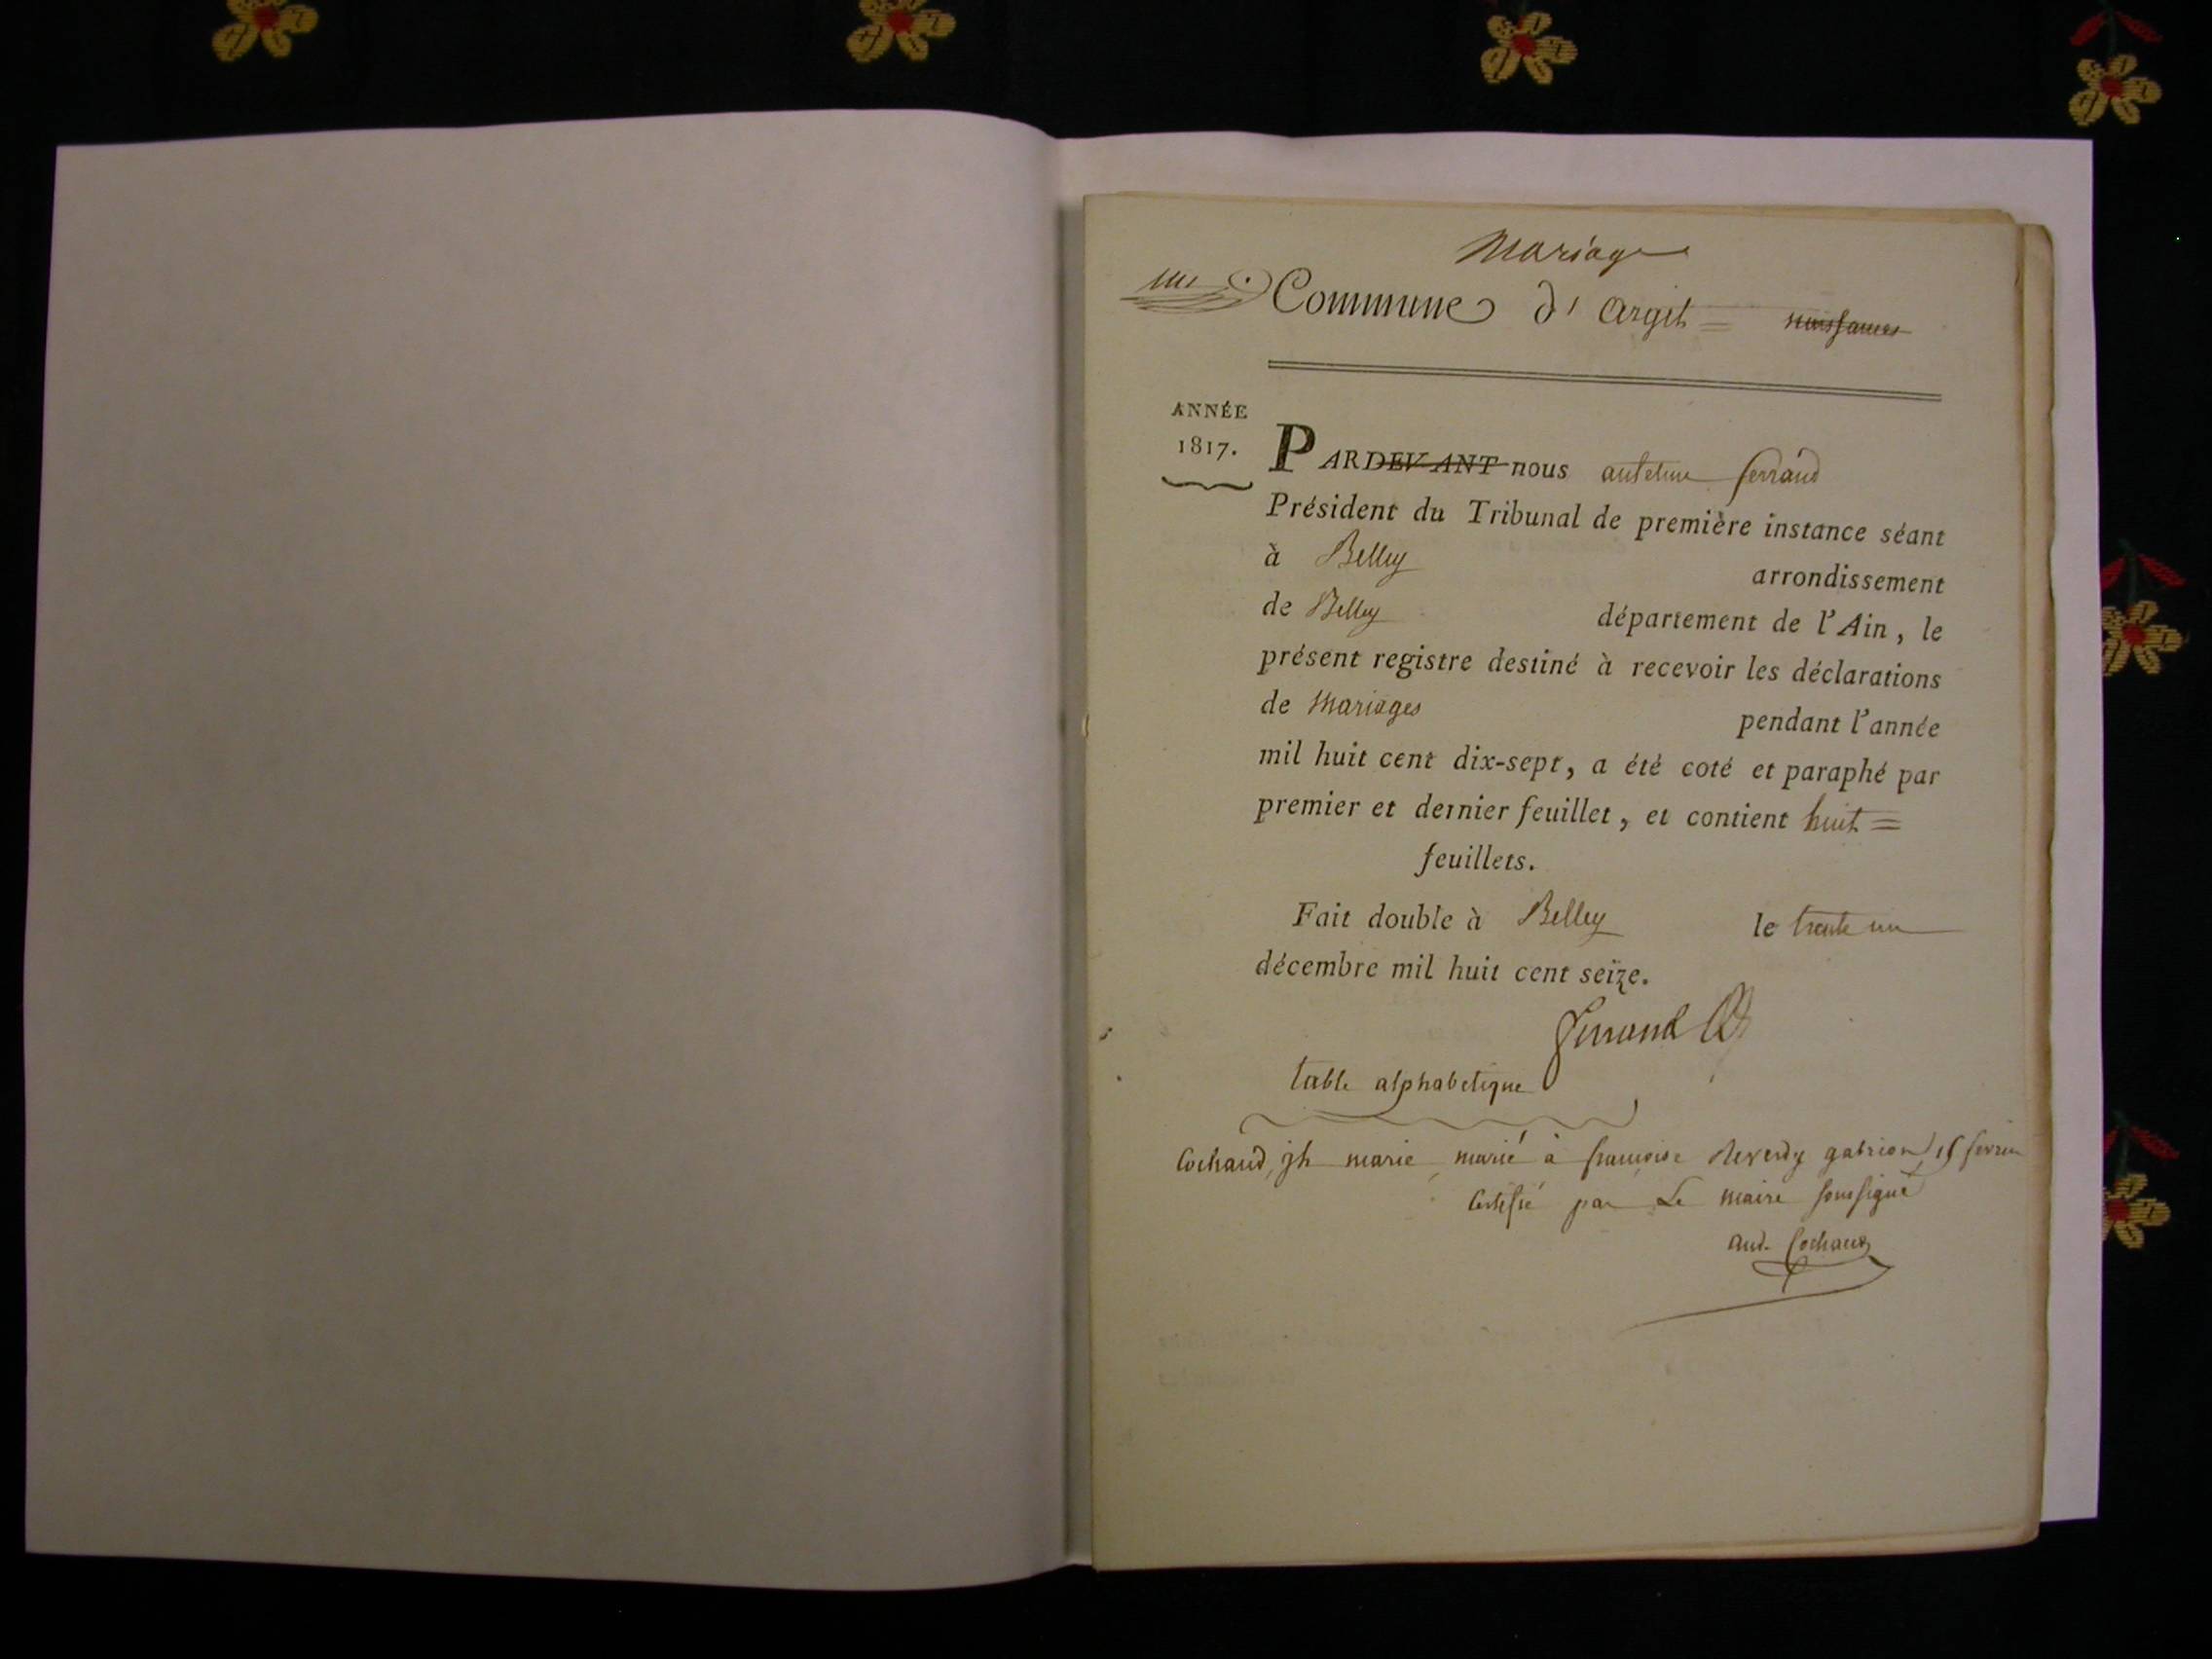 Mariage
un Commune d' argit = naissances
ANNÉE
1817.
PARDEVANT nous antelme ferrand
Président du Tribunal de première instance séant
à Belley arrondissement
de Belley département de l'Ain, le
présent registre destiné à recevoir les déclarations
de Mariages pendant l'année
mil huit cent dix-sept, a été coté et paraphé par
premier et dernier feuillet, et contient huit =
feuillets.
Fait double à Belley le trente un
décembre mil huit cent seize.
Ferrand
table alphabetique
Cochaud, jh marie marié à francoise Reverdy gabrion 15 fevrier
Certifié par Le maire soussigné
and. Cochaud